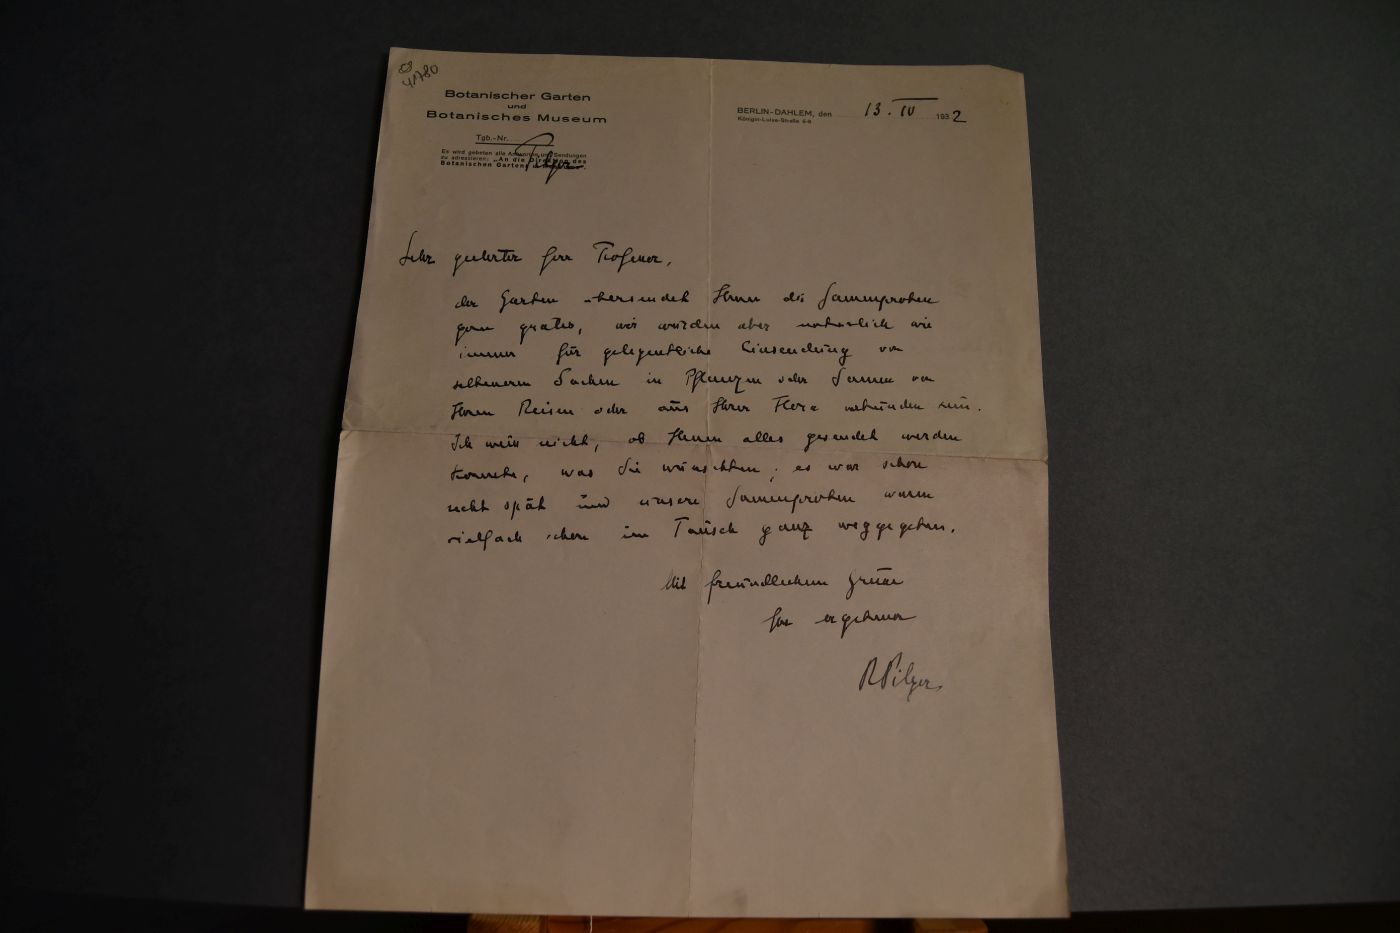 41780
Botanischer Garten
und
Botanisches Museum
Tgb.-Nr.
Pilger
Es wird gebeten alle Antworten und Sendungen
zu adressieren: „An die Direktion des
Botanischen Gartens
BERLIN-DAHLEM, den 13. IV 1932
Königin-Luise-Straße 6-8
Sehr geehrter Herr Professor,
der Garten übersendet Ihnen die Samenproben
gern gratis, wir würden aber natürlich wie
immer für gelegentliche Einsendung von
selteneren Sachen in Pflanzen oder Samen von
Ihren Reisen oder aus Ihrer Flora verbunden sein.
Ich weiß nicht, ob Ihnen alles gesendet werden
konnte, was Sie wünschten; es war schon
recht spät und unsere Samenproben waren
vielfach schon im Tausch ganz weggegeben.
Mit freundlichem Grusse
Ihr ergebener
R Pilger